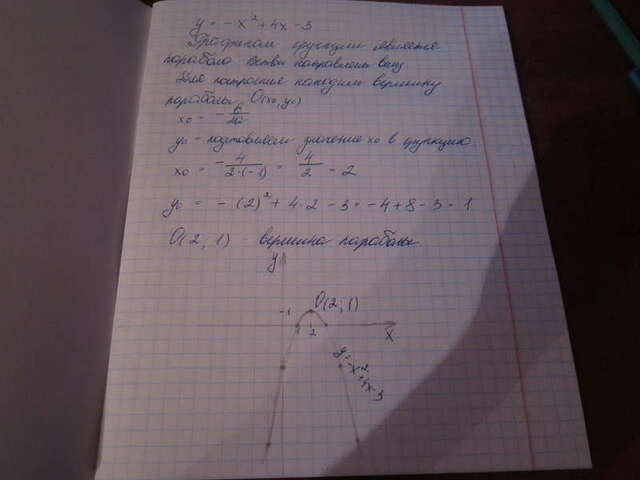 y = -x² + 4x - 3
Графиком функции является
парабола. Ветви направлены вниз
Для построения находим вершину
параболы O(x₀, y₀)
x₀ = -b/2a
y₀ - подставляем значение x₀ в функцию.
x₀ = -4/2·(-1) = 4/2 = 2
y₀ = -(2)² + 4·2 - 3 = -4 + 8 - 3 = 1
O(2; 1) - вершина параболы.
y
O(2; 1)
-1
1 2
x
y = -x² + 4x - 3